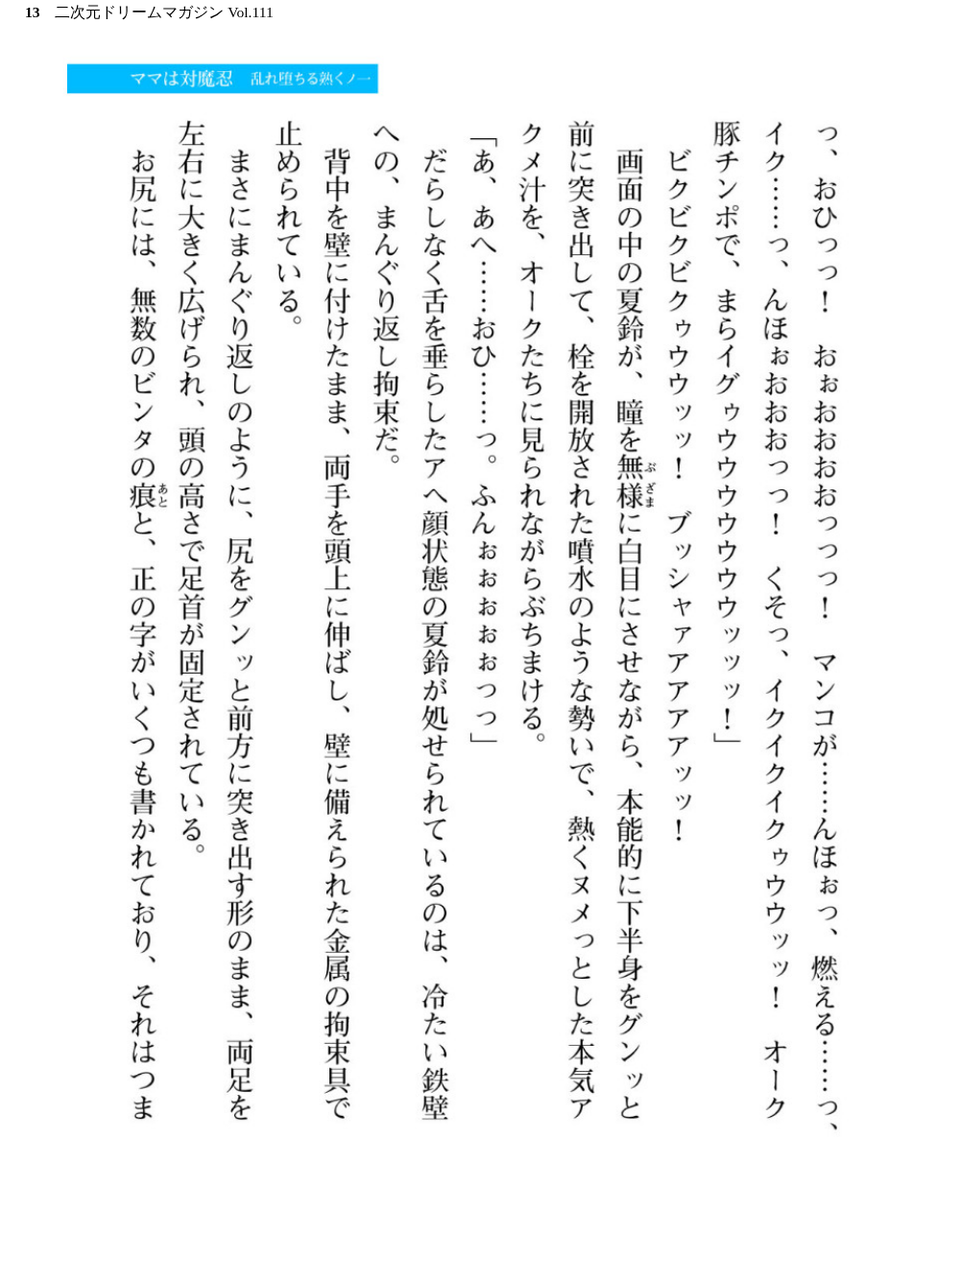 13　二次元ドリームマガジン Vol.111
ママは対魔忍　乱れ堕ちる熟くノ一
っ、おひっっ！　おぉおおおおっっっ！　マンコが……んほぉっ、燃える……っ、
イク……っ、んほぉおおおっっ！　くそっ、イクイクイクゥウウッッ！　オーク
豚チンポで、まらイグゥウウウウウウウッッッ！」
　ビクビクビクゥウウッッ！　ブッシャァアアアアッッ！
　画面の中の夏鈴が、瞳を無様に白目にさせながら、本能的に下半身をグンッと
前に突き出して、栓を開放された噴水のような勢いで、熱くヌメっとした本気ア
クメ汁を、オークたちに見られながらぶちまける。
「あ、あへ……おひ……っ。ふんぉぉぉぉぉっっ」
　だらしなく舌を垂らしたアヘ顔状態の夏鈴が処せられているのは、冷たい鉄壁
への、まんぐり返し拘束だ。
　背中を壁に付けたまま、両手を頭上に伸ばし、壁に備えられた金属の拘束具で
止められている。
　まさにまんぐり返しのように、尻をグンッと前方に突き出す形のまま、両足を
左右に大きく広げられ、頭の高さで足首が固定されている。
　お尻には、無数のビンタの痕と、正の字がいくつも書かれており、それはつま